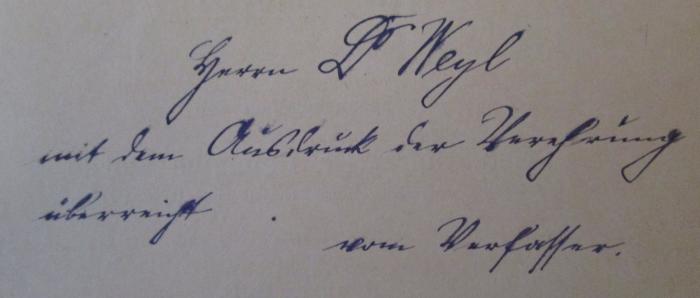 Herrn Dr Weyl
mit dem Ausdruck der Verehrung
überreicht
vom Verfasser.